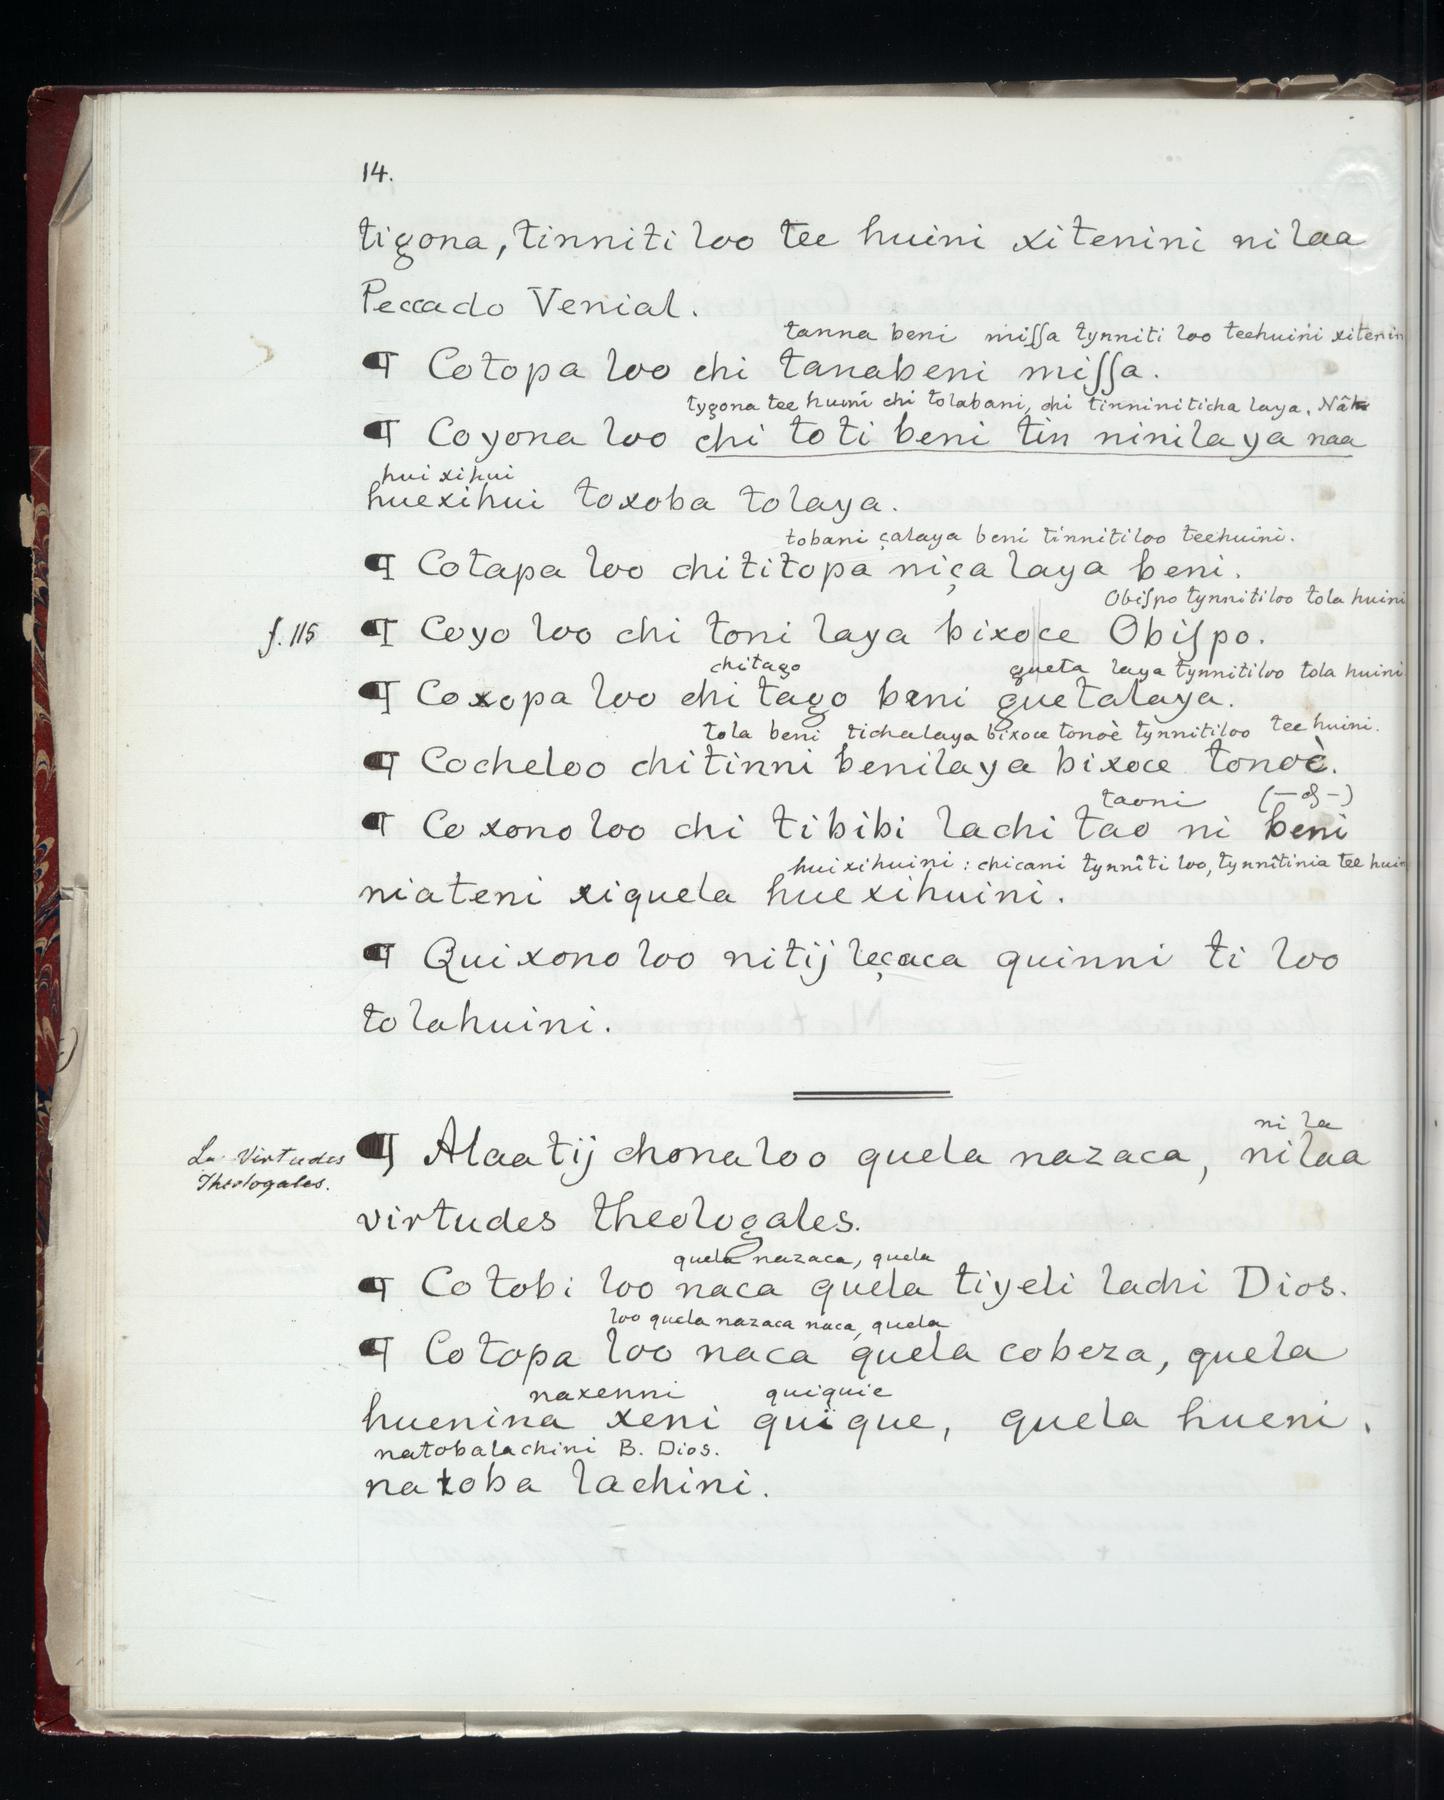 14.
tigona, tinniti loo tee huini xitenini nilaa
Peccado Venial.
tanna beni miſſa tynniti loo teehuini xitenin
¶ Cotopa loo chi tanabeni miſſa.
tygona tee huini chi tolabani, chi tinniniticha laya.
¶ Coyona loo chi toti beni tin ninilaya naa
hui xihui
huexihui toxoba tolaya.
tobani çalaya beni tinnitiloo teehuini.
¶ Cotapa loo chititopa niça laya beni.
Obiſpo tynnitiloo tola huini
f. 115 ¶ Coyo loo chi toni laya bixoce Obiſpo.
chitago queta laya tynnitiloo tola huini
¶ Coxopa loo chi tago beni quetalaya.
tola beni tichalaya bixoce tonoè tynnitiloo tee huini.
¶ Cocheloo chitinni benilaya bixoce tonoè.
taoni
¶ Co xono loo chi tibibi lachi tao ni beni
huixihuini : chicani tynnîti loo, tynnîtinia tee huin
niateni xiquela huexihuini.
¶ Quixono loo nitij leçaca quinni ti loo
tolahuini.
ni la
La Virtudes ¶ Alaatij chonaloo quela nazaca, nilaa
Theologales.
virtudes theologales.
quela nazaca, quela
¶ Co tobi loo naca quela tiyeli lachi Dios.
loo quela nazaca naca, quela
¶ Co topa loo naca quela cobeza, quela
naxenni quiquie
huenina xeni quique, quela hueni.
natobalachini B. Dios.
natoba lachini.